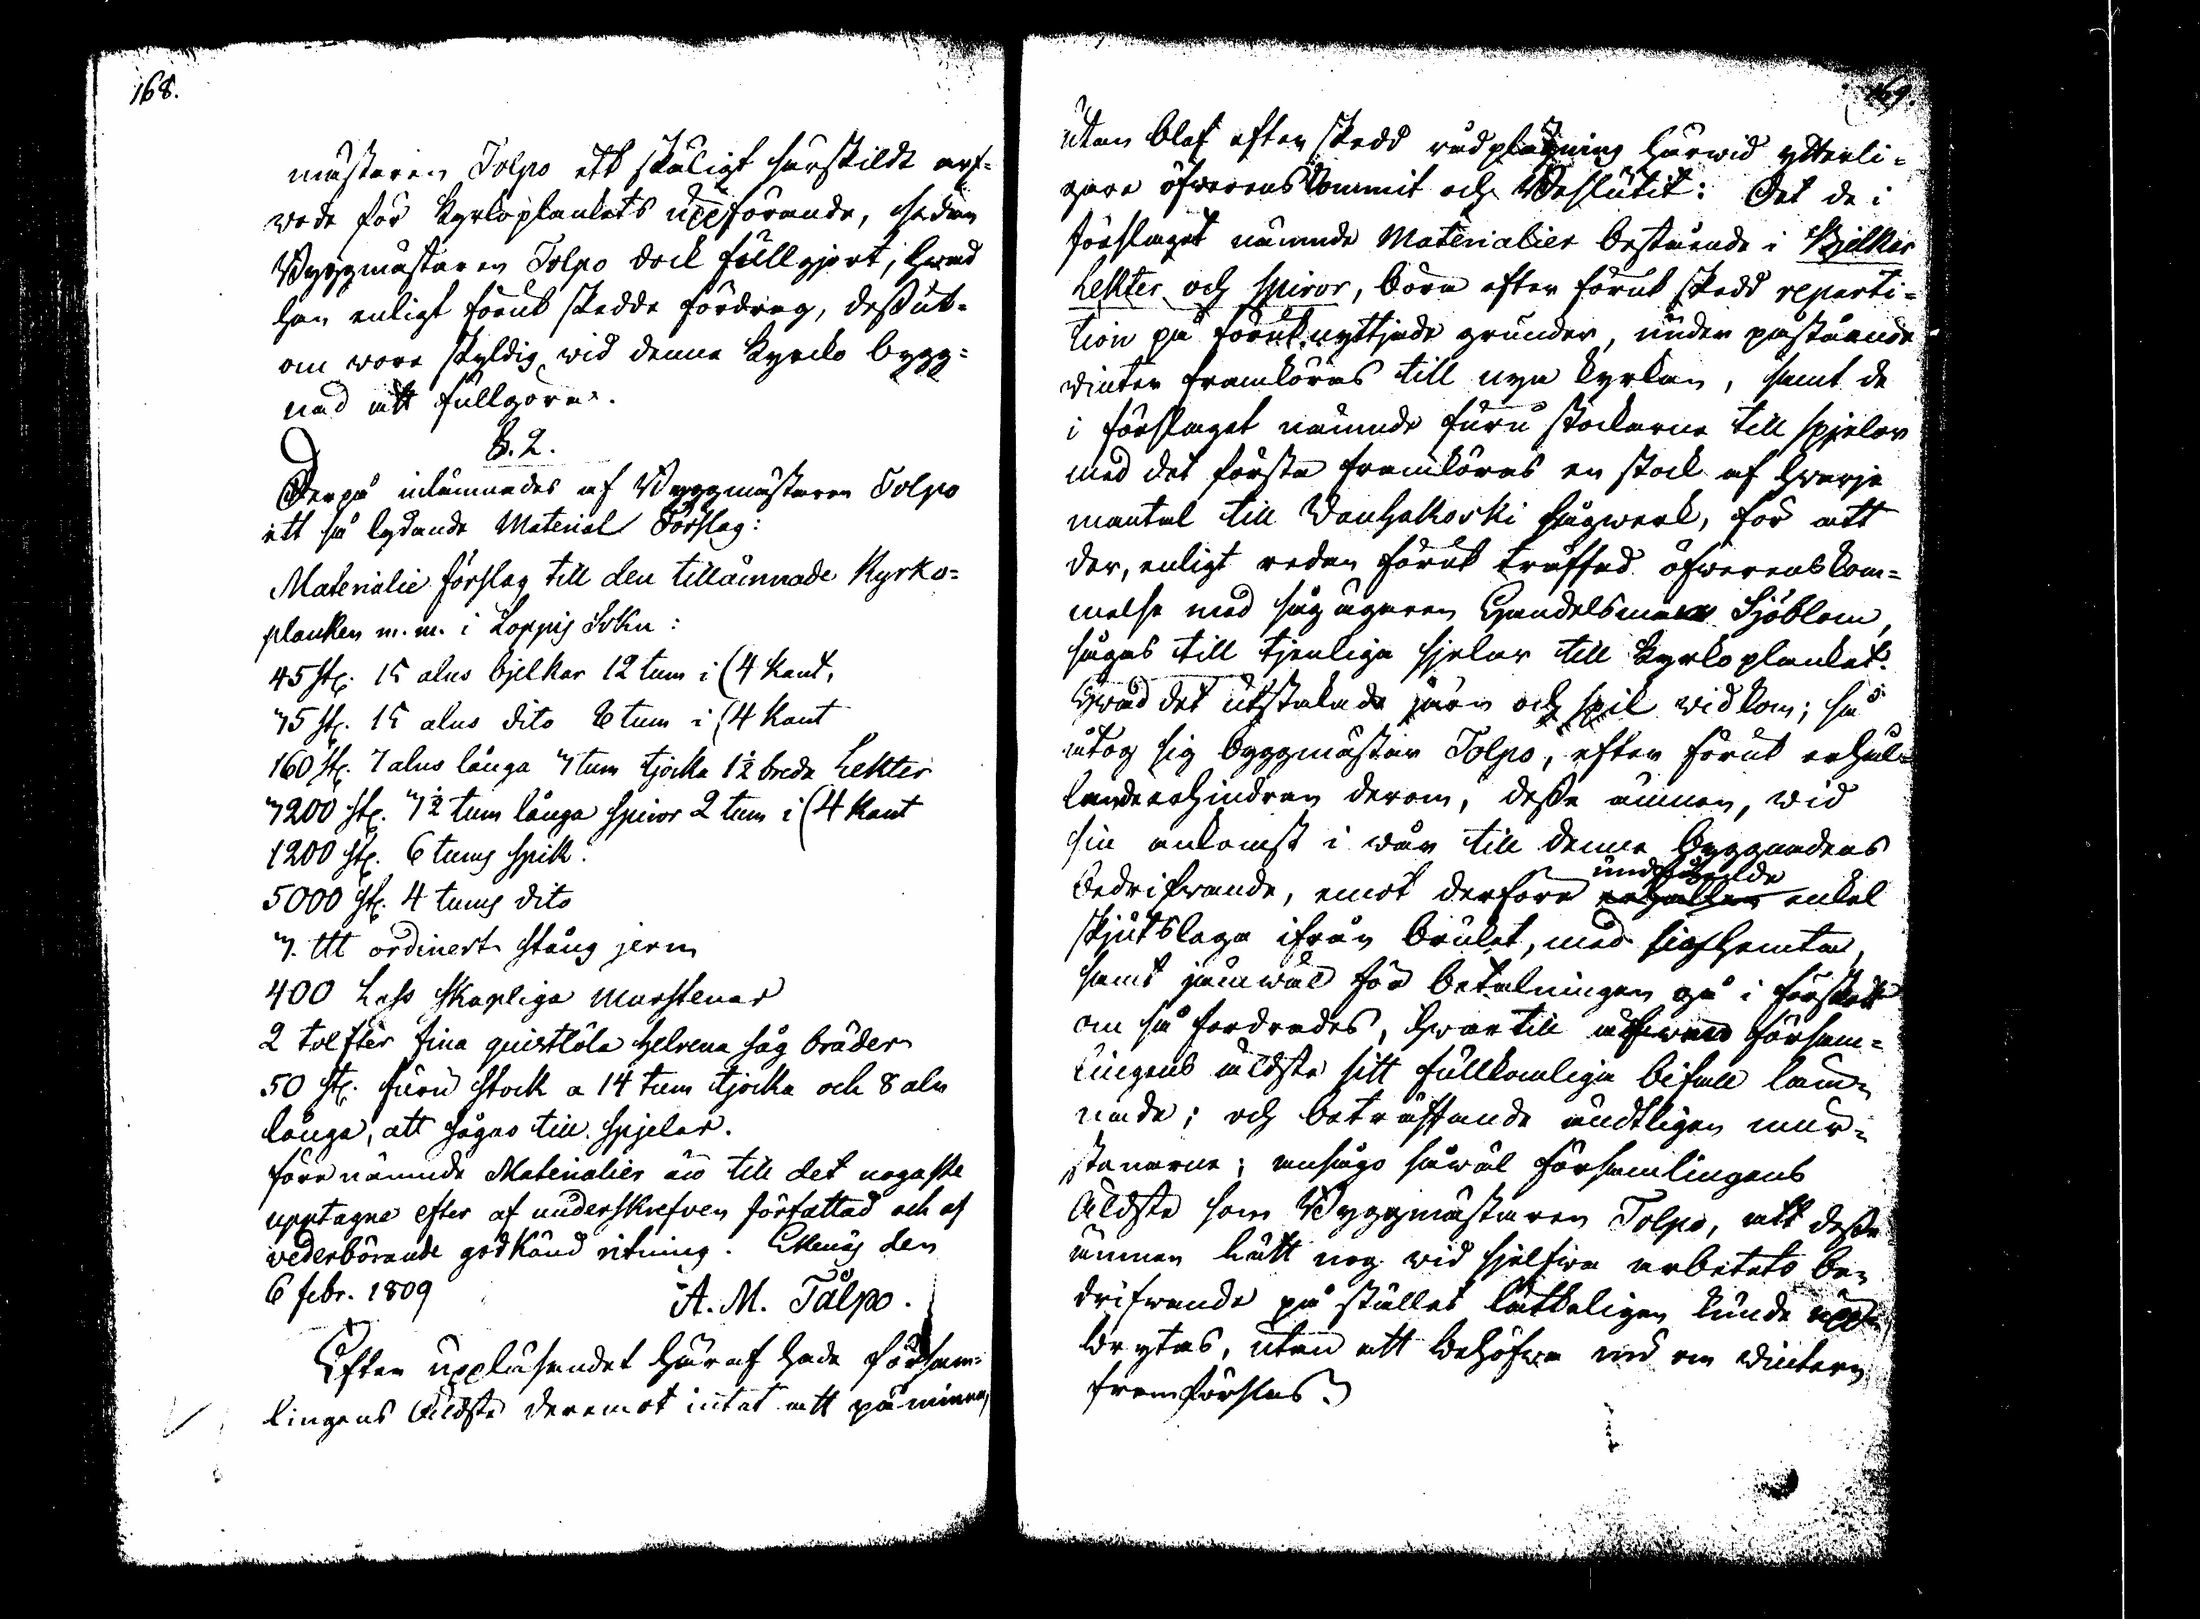 168.
mästaren Tolpo ett skäligt särskildt arf-
wode för kyrkoplankets uppförande, sedan
Byggmästaren Tolpo dock fullgjort, hwad
han enligt förut skedde fördrag, dessut-
om wore skyldig wid denna kyrko bygg-
nad att fullgöra.
§. 2.
Derpå inlämnades af Byggmästaren Tolpo
ett så lydande Material Förslag:
Materialie förslag till den tillämnade Kyrko-
planken m. m. i Loppis Sokn:
45 st. 15 alns bjelkar 12 tum i (4 kant,
75 st. 15 alns dito 6 tum i (4 kant
160 st. 7 alns långa 7 tum tjocka 1½ breda Lekter
7200 st. 7½ tum långa spiror 2 tum i (4 kant
1200 st. 6 tums spik.
5000 st. 4 tums dito
7. ordinert stång jern
400 Lass skapliga murstenar
2 tolfter fina quistlösa helrena såg bräder
50 st. furu stock a 14 tum tjocka och 8 aln
långa, att sågas till spjelar.
förenämnde Materialier äro till det nogaste
upptagne efter af underskrefven författad och af
vederbörande godkänd ritning. Ekenäs den
6 febr. 1809
A. M. Tålpo.
Efter uppläsendet häraf hade försam-
lingens Äldste deremot intet att påminna,
169.
utan blef efter skedd rådplägning härwid ytterli-
gare öfwerenskommit och Beslutit: Det de i
förslaget nämnde Materialier bestående i Bjelkar
Lekter och spiror, böra efter förut skedd reparti-
tion på förut nyttjade grunder, under påstående
winter framköras till nya kyrkan, samt de
i förslaget nämnde furu stockarne till spjelar
med det första framköras en stock af hwarje
mantal till Vanhakoski sågwerk, för att
der, enligt redan förut träffad öfwerenskom-
melse med sågägaren Handelsman Sjöblom,
sågas till tjenliga spjelar till kyrkoplanket.
Hwad det utstakade järn och spik widkom; så
åtog sig byggmästar Tolpo, efter förut erhål-
lande derom, desse ämnen, wid
sin ankomst i wår till denne byggnadens
bedrifwande, emot derföre undfående enkel
skjutslega ifrån bruket, med sig hemta,
samt jämwäl för betalningen gå i förskott
om så fordrades, hwartill äfwen försam-
lingens äldste sitt fullkomliga bifall läm-
nade; och beträffande ändtligen mur-
stenarne; ansågo såwäl församlingens
äldste som Byggmästaren Tolpo, att desse
ämnen lätt nog wid sjelfwa arbetets be-
drifwande på stället lätteligen kunde upp-
brytas, utan att behöfwa nu om wintern
framförslas.